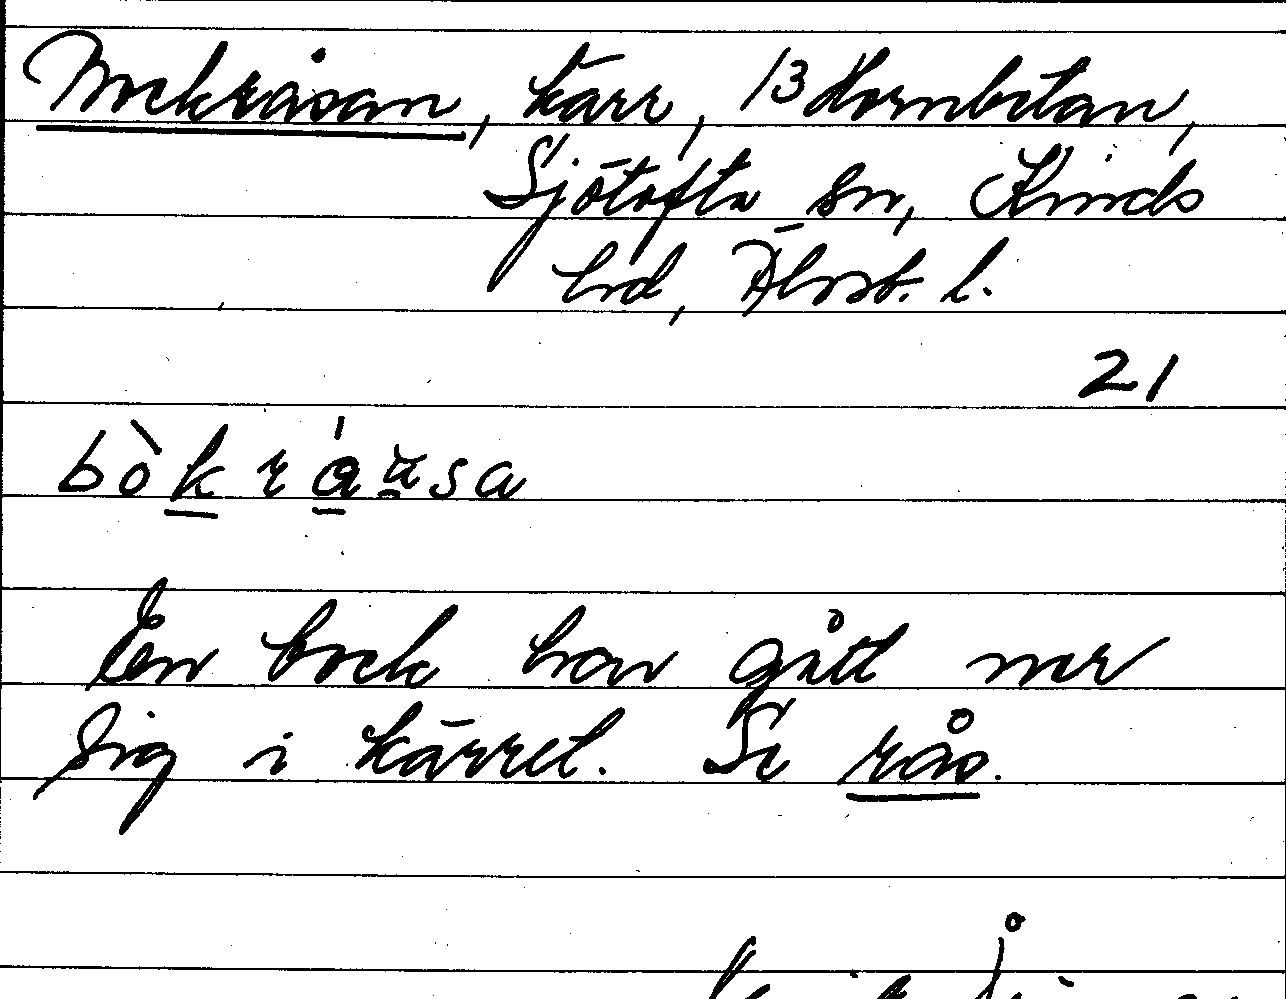 Bockråsan, kärr, 13 Hornbetan,
Sjötofta sn, Kinds
hd, Älvsb. l.
21
bòk råu̯sa
En bock har gått ner
sig i kärret. Se rås.